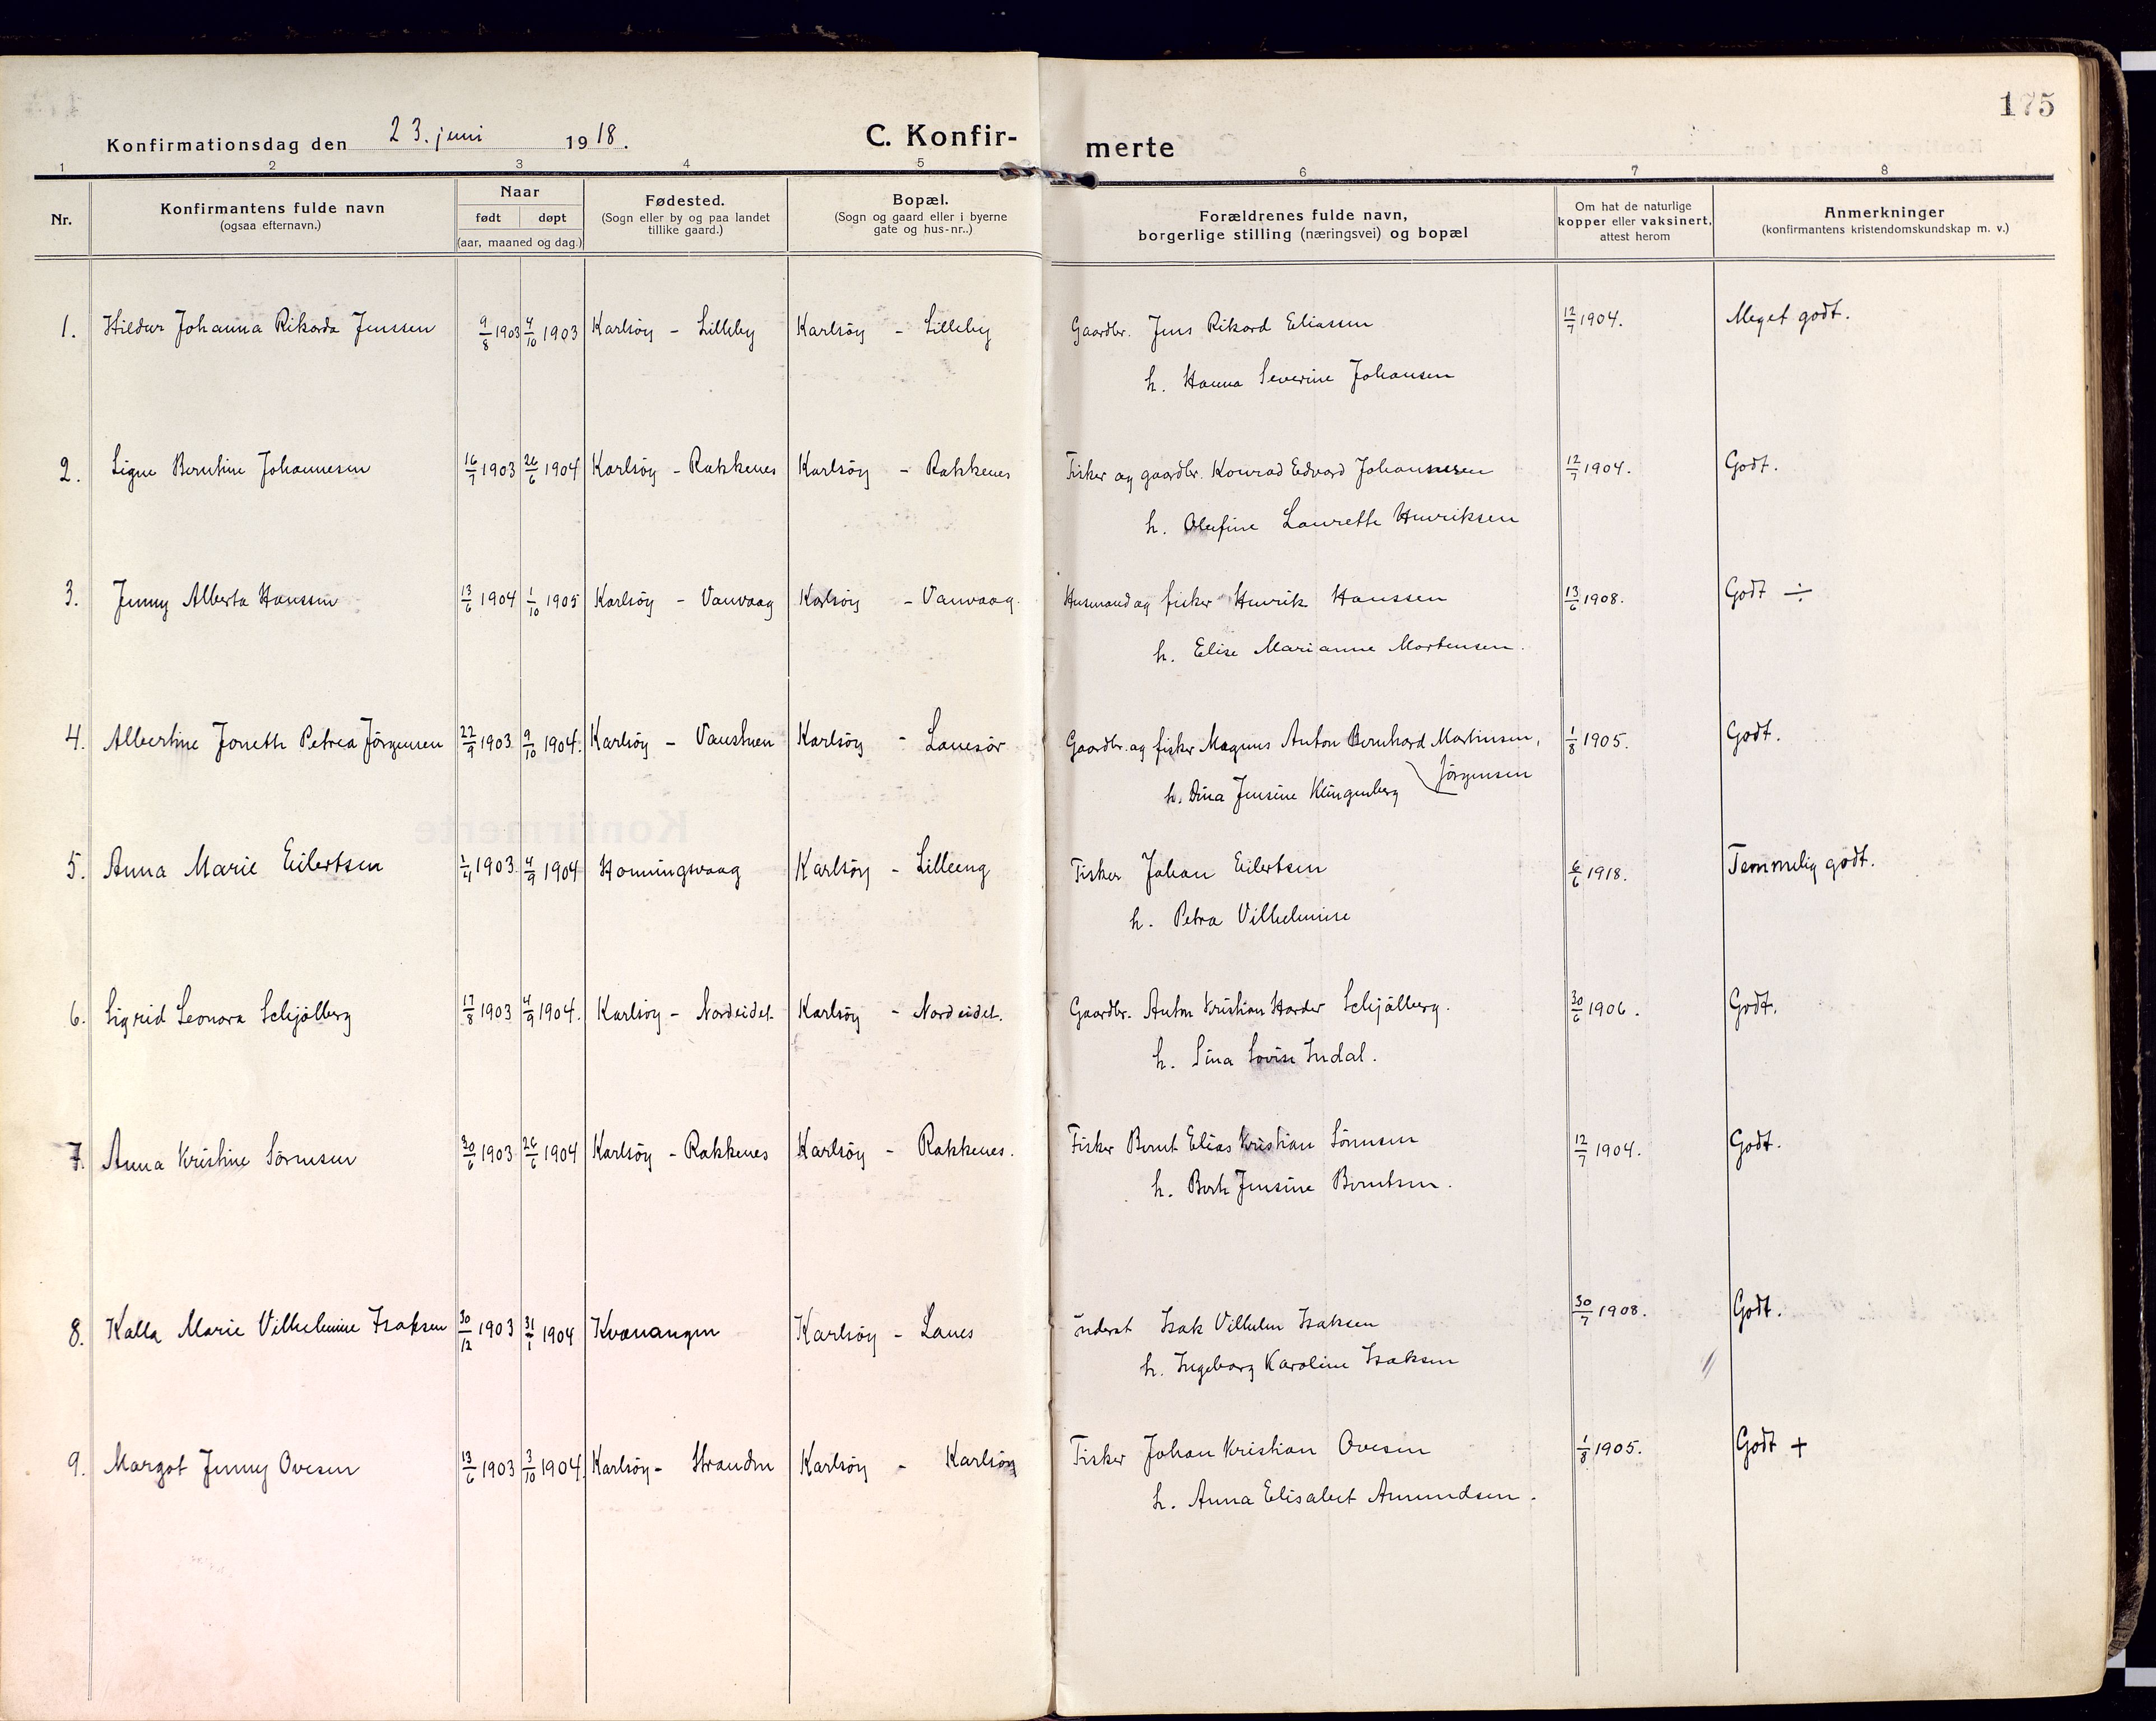 175
Konfirmationsdag den 23. juni 1918.
C. Konfir-merte
1 2 3 4 5 6 7 8
Nr.
Konfirmantens fulde navn
(ogsaa efternavn.)
Naar
født døpt
(aar, maaned og dag.)
Fødested.
(Sogn eller by og paa landet
tillike gaard.)
Bopæl.
(Sogn og gaard eller i byerne
gate og hus-nr..)
Forældrenes fulde navn,
borgerlige stilling (næringsvei) og bopæl
Om hat de naturlige
kopper eller vaksinert,
attest herom
Anmerkninger
(konfirmantens kristendomskundskap m. v.)
1. Hildur Johanna Rikarda Jenssen 9/8 1903 4/10 1903 Karlsöy - Lilleby Karlsöy - Lilleby Gaardbr. Jens Rikard Eliassen 12/7 1904. Meget godt.
h. Hanna Severine Johansen
2. Signe Berntine Johannesen 16/7 1903 26/6 1904 Karlsöy - Rakkenes Karlsöy - Rakkenes Fisker og gaardbr. Konrad Edvard Johannesen 12/7 1904. Godt.
h. Olufine Laurette Henriksen
3. Jenny Alberta Hanssen 13/6 1904 1/10 1905 Karlsöy - Vanvaag Karlsöy - Vanvaag. Husmand og fisker Henrik Hanssen 13/6 1908. Godt ÷
h. Elise Marianne Mortensen.
4. Albertine Jonette Petrea Jörgensen 22/9 1903 9/10 1904. Karlsöy - Vanstuen Karlsöy - Lanesör Gaardbr. og fisker Magnus Anton Bernhard Martinsen, 1/8 1905. Godt.
h. Dina Jensine Klingenberg Jörgensen
5. Anna Marie Eilertsen 1/4 1903. 4/9 1904 Honningsvaag Karlsöy - Lilleeng Fisker Johan Eilertsen 6/6 1918. Temmelig godt.
h. Petra Vilhelmine
6. Sigrid Leonora Schjölberg 17/8 1903 4/9 1904. Karlsöy - Nordeidet. Karlsöy - Nordeidet. Gaardbr. Anton Kristian Harder Schjölberg. 30/6 1906. Godt.
h. Sina Lovise Indal.
7. Anna Kristine Sörensen 30/6 1903 26/6 1904 Karlsöy - Rakkenes Karlsöy - Rakkenes. Fisker Bernt Elias Kristian Sörensen 12/7 1904. Godt.
h. Berte Jensine Berntsen.
8. Kalla Marie Vilhelmine Isaksen 30/12 1903 31/1 1904 Kvænangen Karlsöy - Lanes Inderst Isak Vilhelm Isaksen 30/7 1908. Godt.
h. Ingeborg Karoline Isaksen
9. Margot Jenny Ovesen 13/6 1903 3/10 1904. Karlsöy - Stranden Karlsöy - Karlsöy Fisker Johan Kristian Ovesen 1/8 1905. Godt +
h. Anna Elisabet Amundsen.